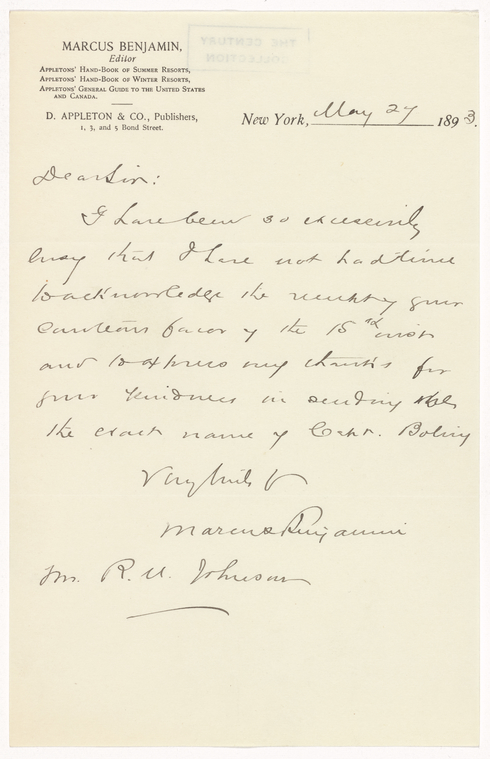 MARCUS BENJAMIN,
Editor
APPLETONS' HAND-BOOK OF SUMMER RESORTS,
APPLETONS' HAND-BOOK OF WINTER RESORTS,
APPLETONS' GENERAL GUIDE TO THE UNITED STATES
AND CANADA.
D. APPLETON & CO., Publishers,
1, 3, and 5 Bond Street.
THE CENTURY
COLLECTION
New York, May 27 1893.
Dear Sir:
I have been so excessively
busy that I have not had time
to acknowledge the receipt of your
courteous favor of the 15 inst
and to express my thanks for
your kindness in sending me
the exact name of Capt.
Very truly
Marcus Benjamin
Mr. R. U. Johnson